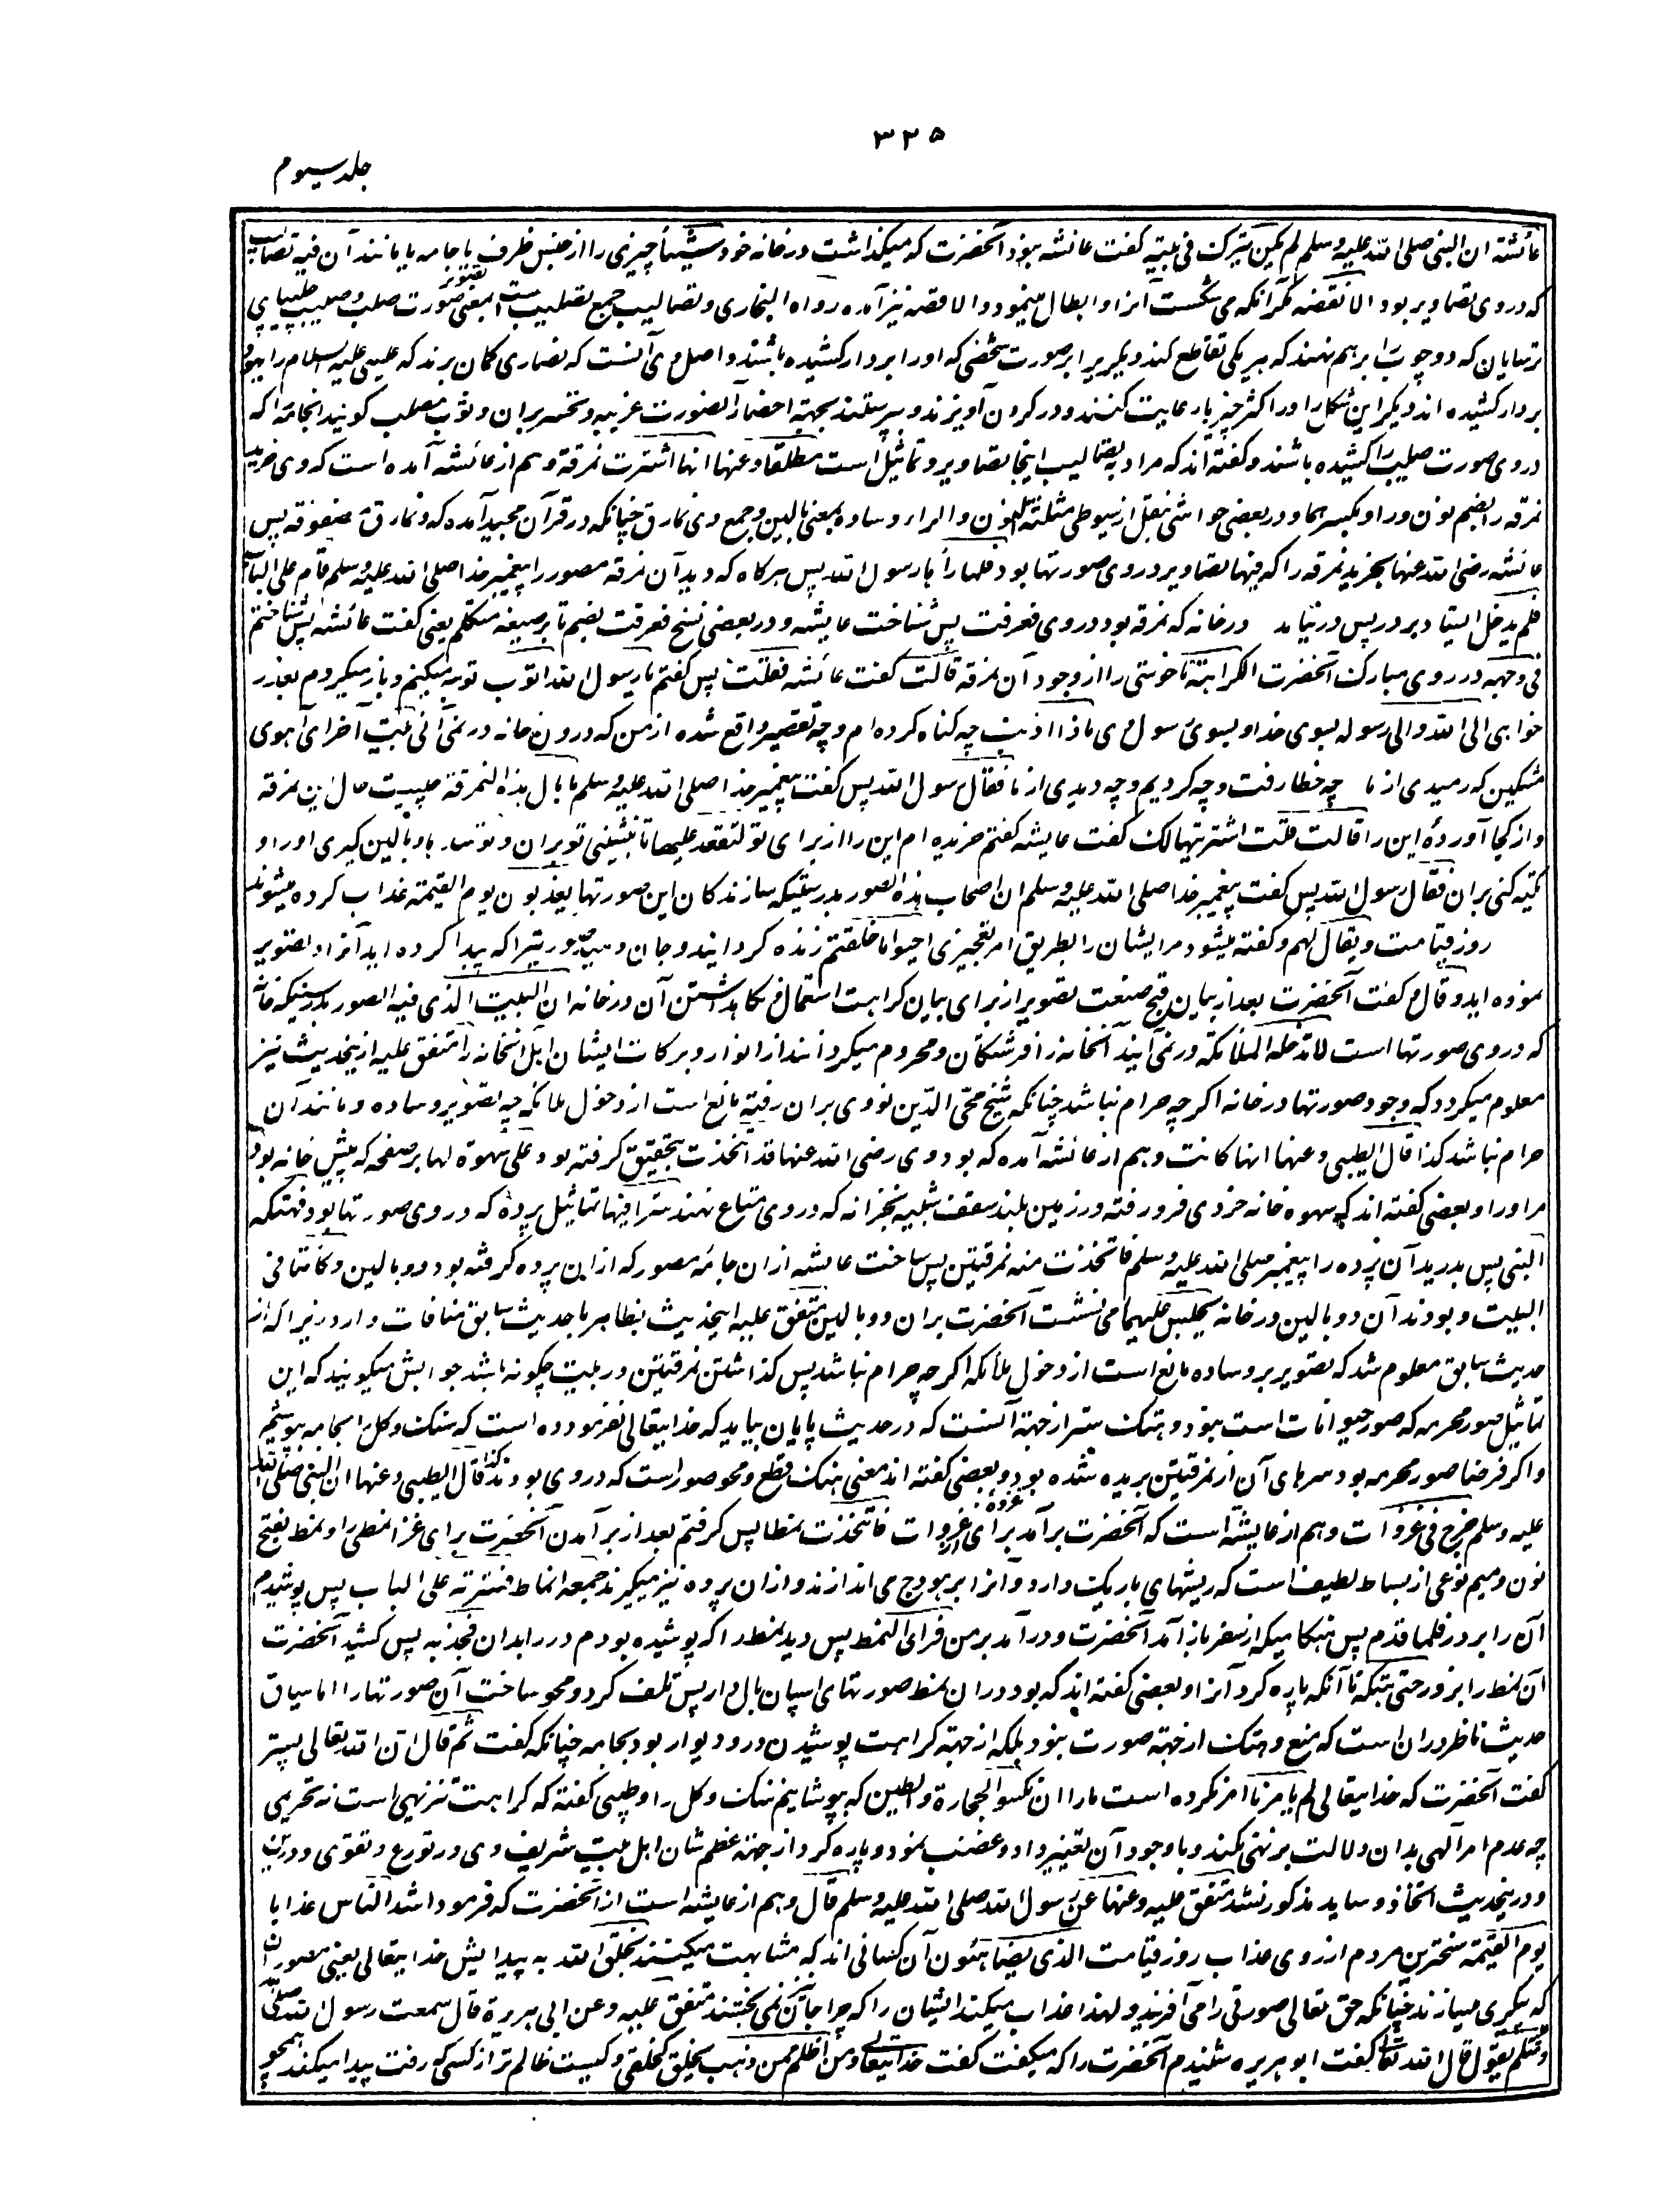 ۳۲۵
جلد سیوم
عائشة ان النبی صلی الله علیه وسلم لم یکن یترک فی بیته گفت عائشه نبود آنحضرت که میگذاشت در خانه خود شیئا چیزی را از جنس ظرف یا جامه یا مانند آن فیه تصالیب
که در وی تصاویر بود الا نقضه مگر آنکه می شکست آنرا و ابطال مینمود و الا قضبه نیز آمده رواه البخاری و تصالیب جمع تصلیب ست بمعنی تصویر صورت صلیب و صلیب چلیپای
ترسایان که دو چوب را بر هم نهند که هر یکی تقاطع کند دیگر را بر صورت شخصی که او را بر دار کشیده باشند و اصل وی آنست که نصاری گمان برند که عیسی علیه السلام را یهود
بر دار کشیده اند و دیگر این شکل را در اکثر چیزها رعایت کنند و در گردن آویزند و بپرستند بجهة احضار الصورت غریبه و تحسر بران و ثوب مصلب گویند آنجامه را که
در وی صورت صلیب را کشیده باشند و گفته اند که مراد به تصالیب اینجا تصاویر و تماثیل است مطلقا وعنها انها اشترت نمرقة و هم از عائشه آمده است که وی خرید
نمرقه را بضم نون و را و بکسر هما و در بعضی حواشی نقل از سیوطی مثلثة النون والراء وساده بمعنی بالین و جمع وی نمارق چنانکه در قرآن مجید آمده که و نمارق مصفوفة پس
عائشه رضی الله عنها بخرید نمرقه را که فیها تصاویر در وی صورتها بود فلما رآها رسول الله پس هرگاه که دید آن نمرقه مصور را پیغمبر خدا صلی الله علیه وسلم قام علی الباب
فلم یدخل استاد بر در پس در نیامد در خانه که نمرقه بود در وی فعرفت پس شناخت عایشه و در بعضی نسخ فعرفت بضم تا بر صیغه متکلم یعنی گفت عائشه پس شناختم
فی وجهه در روی مبارک آنحضرت الکراهة ناخوشی را از وجود آن نمرقه قالت گفت عائشه فقلت پس گفتم یا رسول الله اتوب توبه میکنم و باز میگردم بعذر
خواهی الی الله والی رسوله بسوی خدا و بسوی رسول وی ماذا اذنبت چه گناه کرده ام و چه تقصیر واقع شده از من که درون خانه در نمی آئی بیت آخر ای آهوی
مشکین که رمیدی از ما چه خطا رفت و چه کردیم و چه دیدی از ما فقال رسول الله پس گفت پیغمبر خدا صلی الله علیه وسلم ما بال هذه النمرقة چیست حال این نمرقه
و از کجا آوردهٔ این را قالت قلت اشتریتها لک گفت عایشه گفتم خریده ام این را از برای تو لتقعد علیها تا بنشینی تو بران و توسدها و بالین گیری او را و
تکیه کنی بران فقال رسول الله پس گفت پیغمبر خدا صلی الله علیه وسلم ان اصحاب هذه الصور بدرستیکه سازندگان این صورتها یعذبون یوم القیمة عذاب کرده میشوند
روز قیامت و یقال لهم و گفته میشود مر ایشان را بطریق امر تعجیزی احیوا ما خلقتم زنده گردانید و جان دهید صورتیرا که پیدا کرده اید آنرا و تصویر
نموده اید وقال و گفت آنحضرت بعد از بیان قبح صنعت تصویر از برای بیان کراهت استعمال و نگاهداشتن آن در خانه ان البیت الذی فیه الصور بدرستیکه خانهٔ
که در وی صورتها است لا تدخله الملائکة در نمی آیند آنخانه را فرشتگان و محروم میگردانند از انوار و برکات ایشان اهل آنخانه را متفق علیه ازینحدیث نیز
معلوم میگردد که وجود صورتها در خانه اگر چه حرام نباشد چنانکه شیخ محی الدین نووی بران رفته مانع است از دخول ملائکه چه تصویر وساده و مانند آن
حرام نباشد کذا قال الطیبی وعنها انها کانت و هم از عائشه آمده که بود وی رضی الله عنها قد اتخذت بتحقیق گرفته بود علی سهوة لها بر صفحه که پیش خانه بود
مر او را و بعضی گفته اند که سهوه خانه خردی فرو رفته در زمین بلند سقف شبیه بخزانه که در وی متاع نهند سترا فیها تماثیل پردهٔ که در وی صورتها بود فهتکه
النبی پس بدرید آن پرده را پیغمبر صلی الله علیه وسلم فاتخذت منه نمرقتین پس ساخت عایشه از ان جامهٔ مصور که از این پرده گرفته بود دو بالین و کانتا فی
البیت و بودند آن دو بالین در خانه یجلس علیهما می نشست آنحضرت بران دو بالین متفق علیه اینحدیث بظاهر با حدیث سابق منافات دارد زیرا که از
حدیث سابق معلوم شد که تصویر بر وساده مانع است از دخول ملائکه اگر چه حرام نباشد پس گذاشتن نمرقتین در بیت چگونه باشد جوابش میگویند که این
تماثیل صور محرمه که صور حیوانات است نبود و هتک ستر از جهة آنست که در حدیث پایان بیاید که خدایتعالی نفرموده است که سنگ و گل را بجامه بپوشیم
و اگر فرضا صور محرمه بود سرهای آن از نمرقتین بریده شده بود و بعضی گفته اند معنی هتک قطع و محو صور است که در وی بودند کذا قال الطیبی وعنها ان النبی صلی الله
علیه وسلم خرج فی غزوات و هم از عایشه است که آنحضرت برآمد برای غزوات غزوة فاتخذت نمطا پس گرفتم بعد از برآمدن آنحضرت برای غزا نمطی را و نمط بفتح
نون و میم نوعی از بساط لطیف است که ریشهای باریک دارد و آنرا بر هودج می اندازند و ازان پرده نیز میگیرند جمعه انماط فسترته علی الباب پس پوشیدم
آن را بر در فلما قدم پس هنگامیکه از سفر باز آمد آنحضرت و درآمد بر من فرأی النمط پس دید نمط را که پوشیده بودم در را بدان فجذبه پس کشید آنحضرت
آن نمط را بزور حتی هتکه تا آنکه پاره کرد آنرا و بعضی گفته اند که بود دران نمط صورتهای اسپان بال دار پس تلف کرد و محو ساخت آن صورتها را اما سیاق
حدیث ناظر دران است که منع و هتک از جهة صورت نبود بلکه از جهة کراهت پوشیدن در و دیوار بود بجامه چنانکه گفت ثم قال ان الله تعالی پستر
گفت آنحضرت که خدایتعالی لم یامرنا امر نکرده است ما را ان نکسو الحجارة والطین که بپوشانیم سنگ و گل را و طیبی گفته که کراهت تنزیهی است نه تحریمی
چه عدم امر الهی بدان دلالت بر نهی نکند و با وجود آن تغییر داد و غضب نمود و پاره کرد از جهة عظم شان اهل بیت شریف وی در تورع و تقوی
و درینحدیث اتخاذ وساید مذکور نشد متفق علیه وعنها عن رسول الله صلی الله علیه وسلم قال و هم از عایشه است از آنحضرت که فرمود اشد الناس عذابا
یوم القیمة سخت‌ترین مردم از روی عذاب روز قیامت الذی یضاهئون آن کسانی اند که مشابهت میکنند بخلق الله به پیدایش خدایتعالی یعنی مصوران
که پیکری میسازند چنانکه حق تعالی صورتی را می آفریند و لهذا عذاب میکند ایشان را که چرا جان نمی بخشند متفق علیه وعن ابی هریرة قال سمعت رسول الله صلی الله علیه
وسلم یقول قال الله تعالی گفت ابو هریره شنیدم آنحضرت را که میگفت گفت خدایتعالی ومن اظلم ممن ذهب یخلق کخلقی و کیست ظالم تر از کسی که رفت پیدا میکند همچو